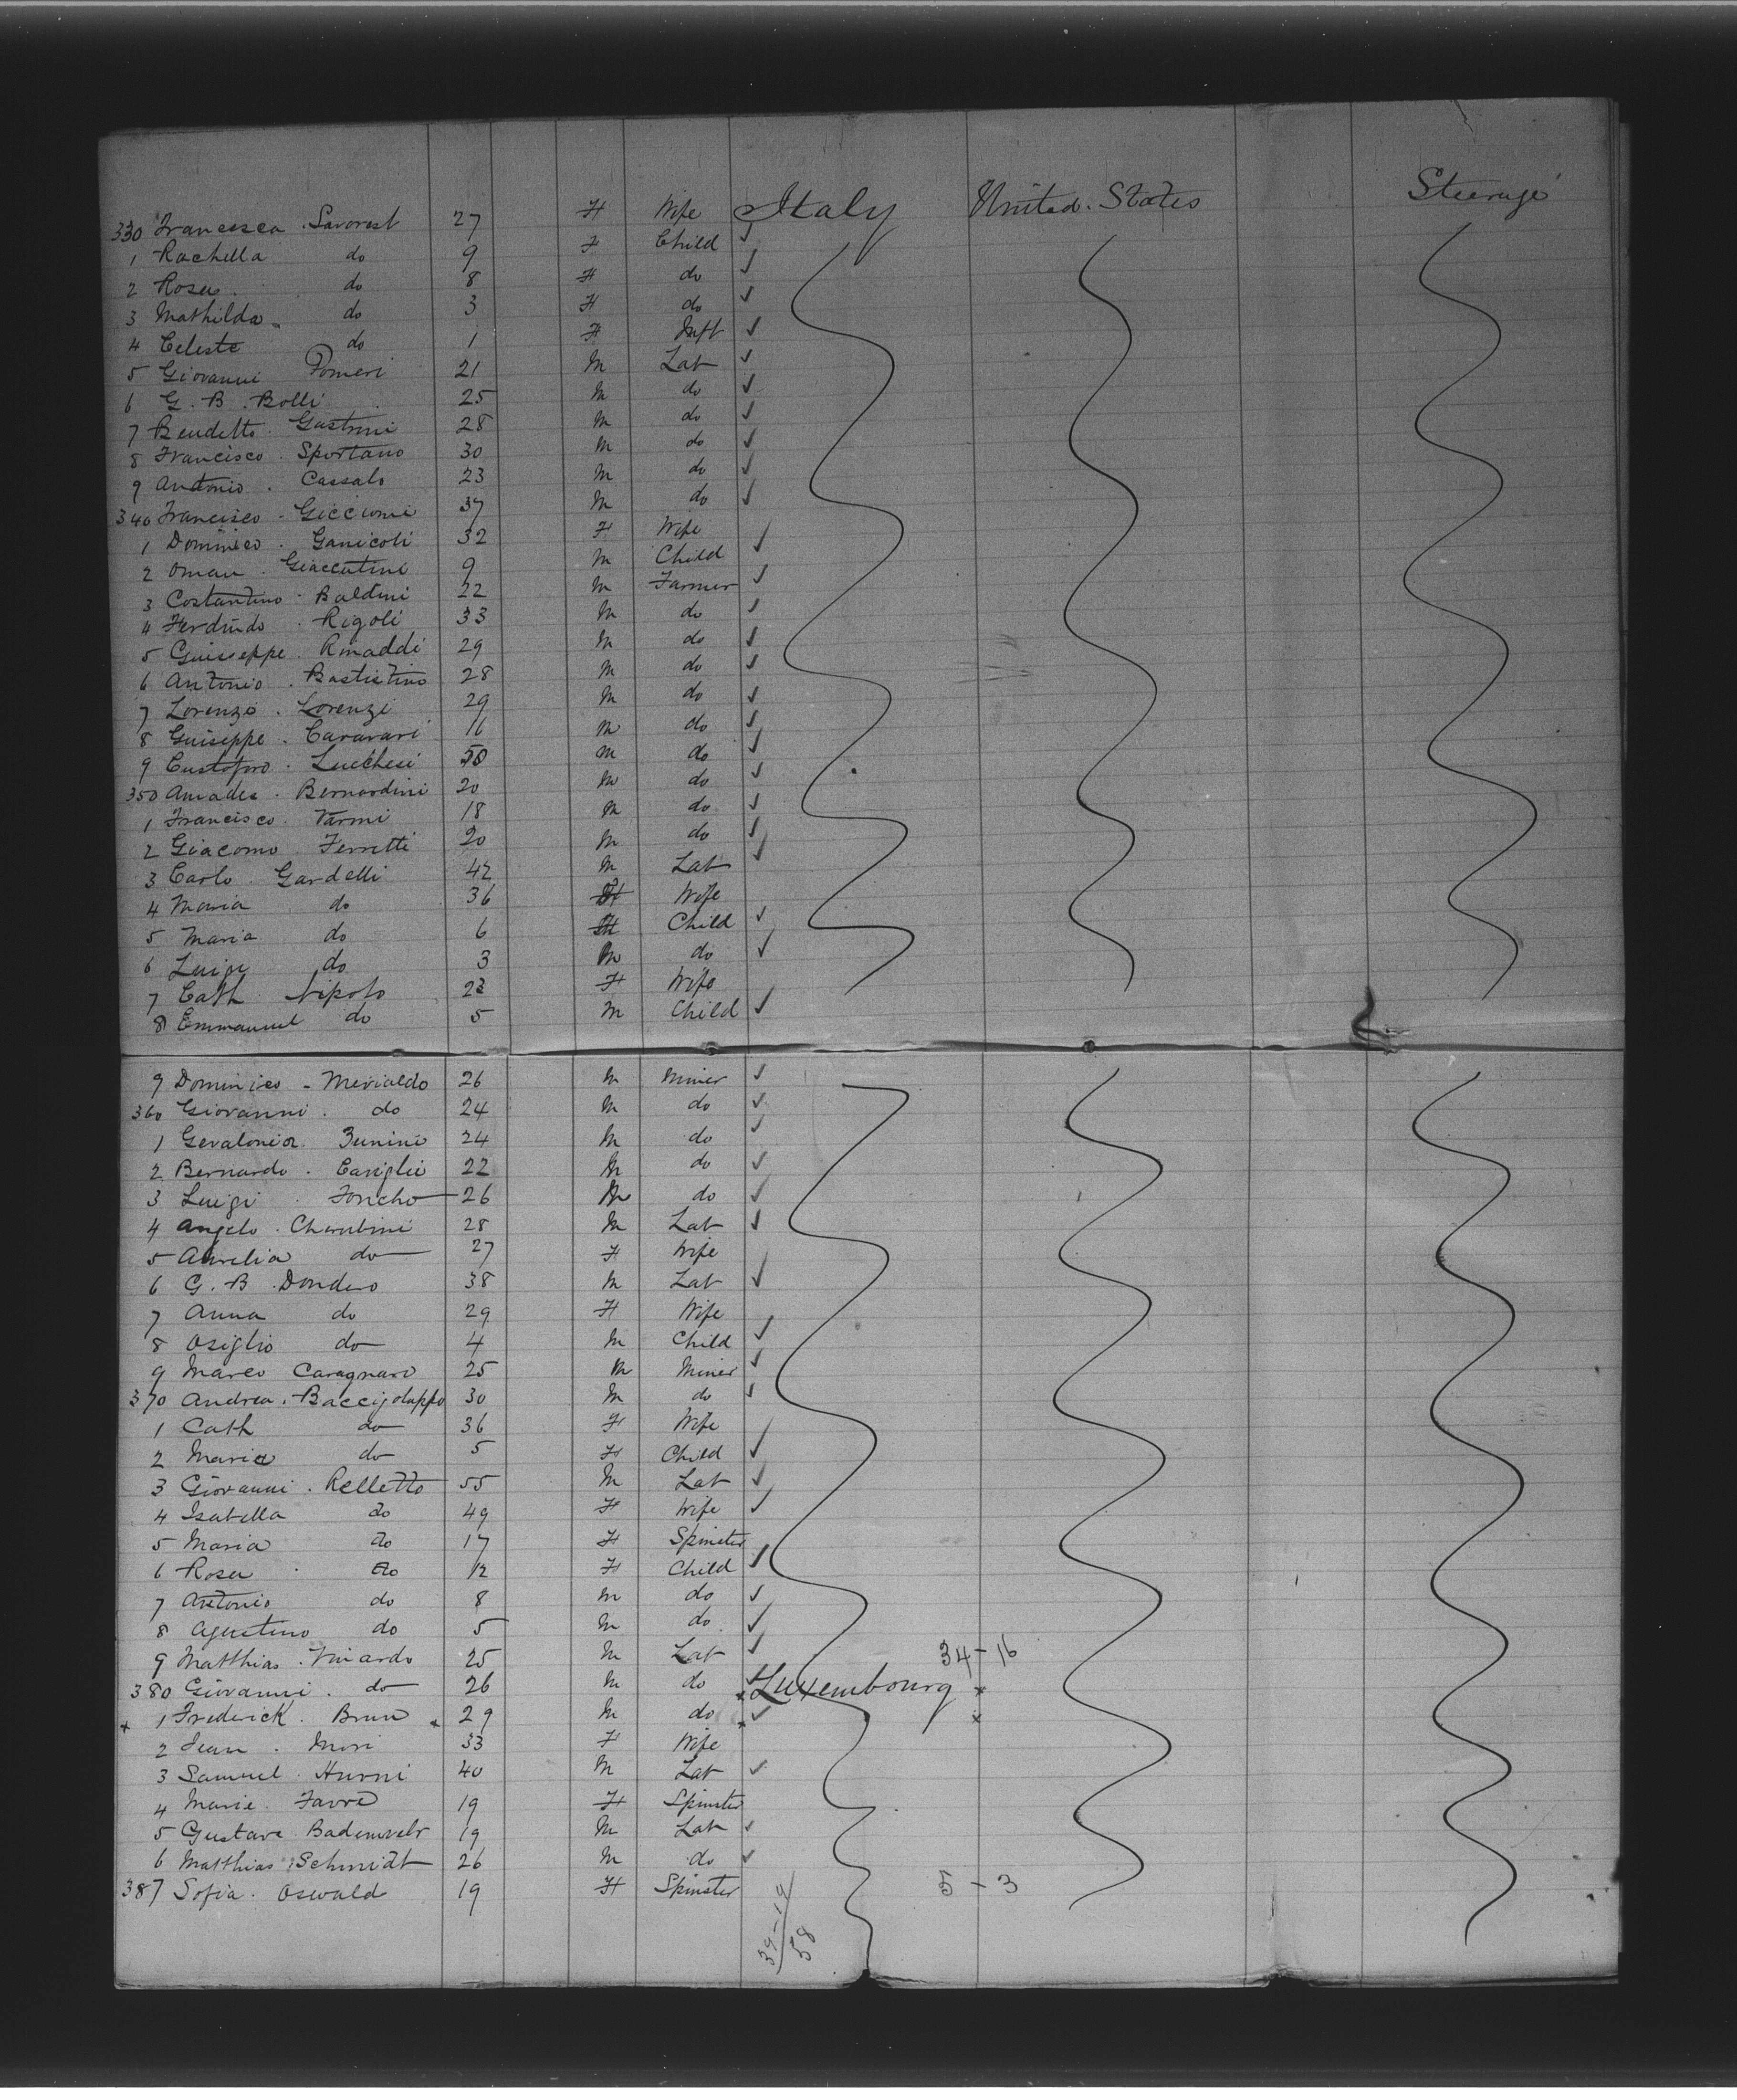 Italy United States Steerage
330 Francesca Savorest 27 F Wife
1 Rachella do 9 F Child
2 Rosa do 8 F do
3 Mathilda do 3 F do
4 Celeste do 1 F Inft
5 Giovanni Pomeri 21 M Lab
6 G. B. Bolli 25 M do
7 Bendetto Gastrini 28 M do
8 Francisco Sportano 30 M do
9 Antonio Cassalo 23 M do
340 Francisco Giccioni 37 M do
1 Dominico Ganicoli 32 F Wife
2 Oman Giaccutini 9 M Child
3 Costantino Baldini 22 M Farmer
4 Ferdindo Rigoli 33 M do
5 Guiseppe Rinaddi 29 M do
6 Antonio Bastistino 28 M do
7 Lorenzo Lorenzi 29 M do
8 Guiseppe Caravari 16 M do
9 Custoforo Lucchesi 50 M do
350 Amadei Bernardini 20 M do
1 Francisco Varmi 18 M do
2 Giacomo Ferretti 20 M do
3 Carlo Gardelli 42 M Lab
4 Maria do 36 F Wife
5 Maria do 6 F Child
6 Luigi do 3 M do
7 Cath Nipoto 23 F Wife
8 Emmanuel do 5 M Child
9 Dominico Merialdo 26 M Miner
360 Giovanni do 24 M do
1 Gevalonia Zunino 24 M do
2 Bernardo Cariglii 22 M do
3 Luigi Foncho 26 M do
4 Angelo Cherubini 28 M Lab
5 Aurelia do 27 F Wife
6 G. B Dondero 38 M Lab
7 Anna do 29 F Wife
8 Osiglio do 4 M Child
9 Marco Caragnaro 25 M Miner
370 Andrea Baccigoluppo 30 M do
1 Cath do 36 F Wife
2 Maria do 5 F Child
3 Giovanni Relletto 55 M Lab
4 Isabella do 49 F Wife
5 Maria do 17 F Spinster
6 Rosa do 12 F Child
7 Antonio do 8 M do
8 Agustino do 5 M do
9 Matthias Vinardo 25 M Lab 34-16
380 Giovanni do 26 M do Luxembourg
1 Frederick Brun 29 M do
2 Jean Mori 33 F Wife
3 Samuel Hurni 40 M Lab
4 Marie Favre 19 F Spinster
5 Gustave 19 M Lab
6 Matthias Schmidt 26 M do
387 Sofia Oswald 19 F Spinster 5-3
39-19
58